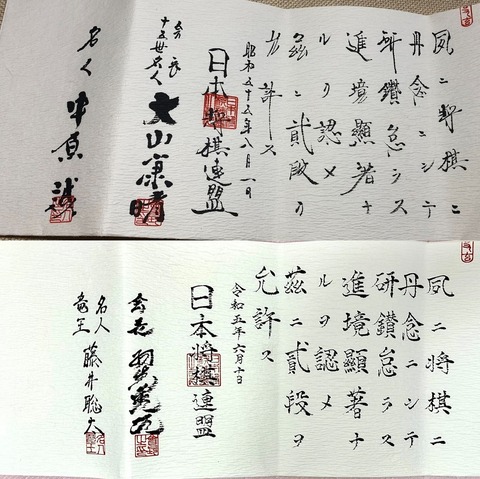 夙ニ将棋ニ
丹念ニシテ
研鑽怠ラス
進境顯著ナ
ルヲ認メ
茲ニ貳段ヲ
允許ス
昭和五十五年八月一日
日本将棋連盟
会長
十五世名人 大山康晴
名人 中原誠
夙ニ将棋ニ
丹念ニシテ
研鑽怠ラス
進境顯著ナ
ルヲ認メ
茲ニ貳段ヲ
允許ス
令和五年六月十日
日本将棋連盟
会長 羽生善治
名人
竜王 藤井聡太